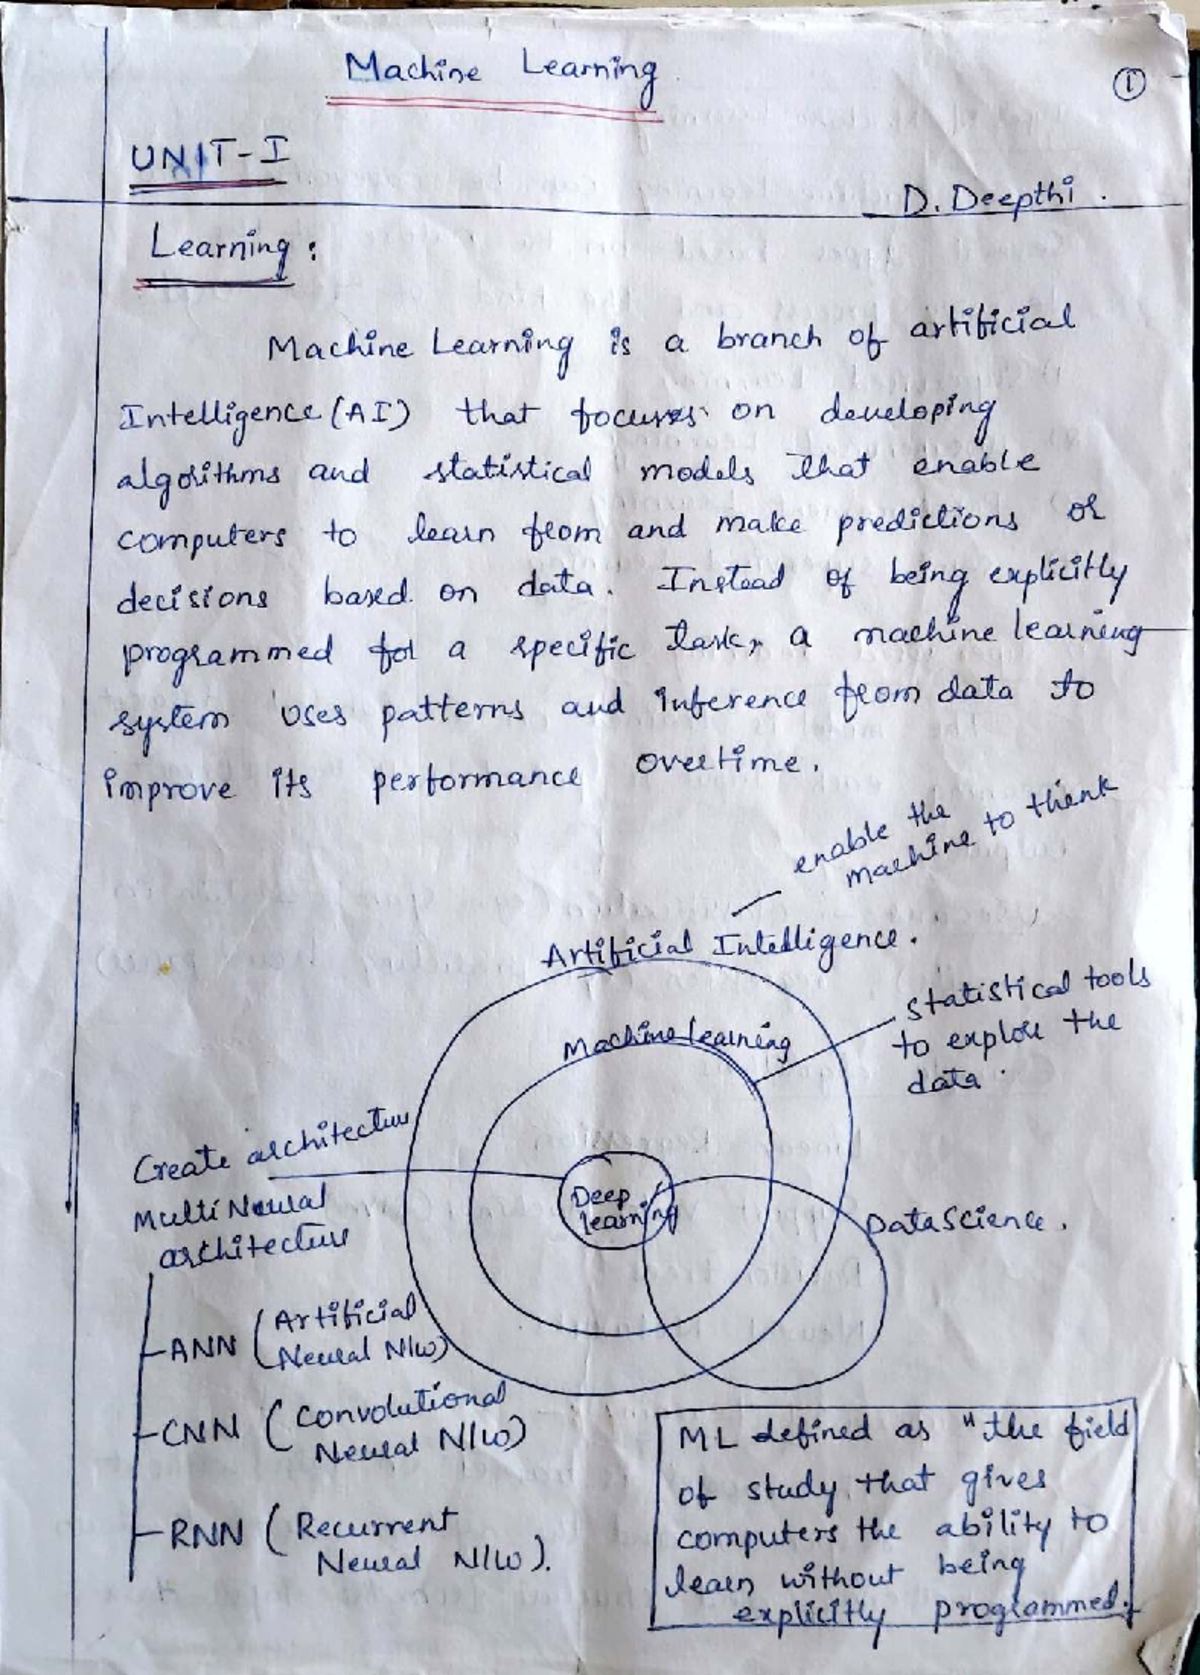 Machine Learning
1
UNIT-I
D. Deepthi.
Learning:
Machine Learning is a branch of artificial
Intelligence (AI) that focuses on developing
algorithms and statistical models that enable
computers to learn from and make predictions or
decisions based on data. Instead of being explicitly
programmed for a specific task, a machine learning
system uses patterns and inference from data to
improve its performance overtime.
enable the
machine to think
Artificial Intelligence.
statistical tools
to explore the
data.
Machine learning
Create architecture
Multi Neural
architecture
Deep
learning
DataScience.
ANN (Artificial
Neural N/w)
CNN (Convolutional
Neural N/w)
RNN (Recurrent
Neural N/w).
ML defined as "the field
of study that gives
computers the ability to
learn without being
explicitly programmed.